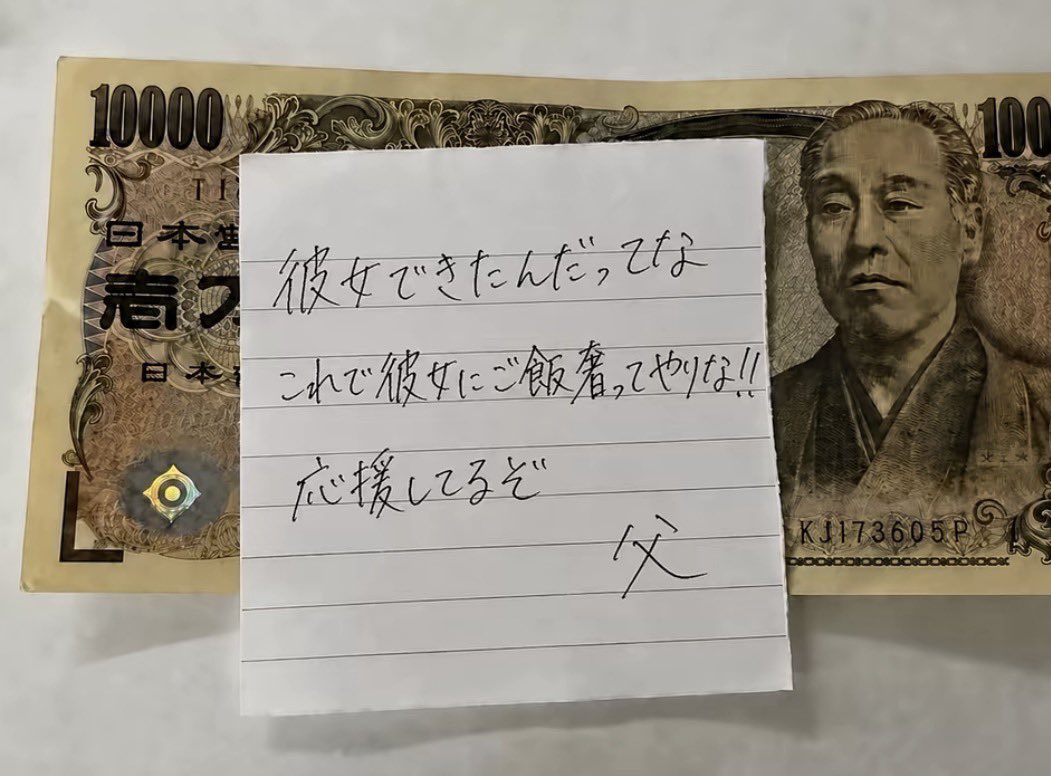 10000
1000
日本
壱万
日本
彼女できたんだってな
これで彼女にご飯奢ってやりな!!
応援してるぞ
父
KJ173605P